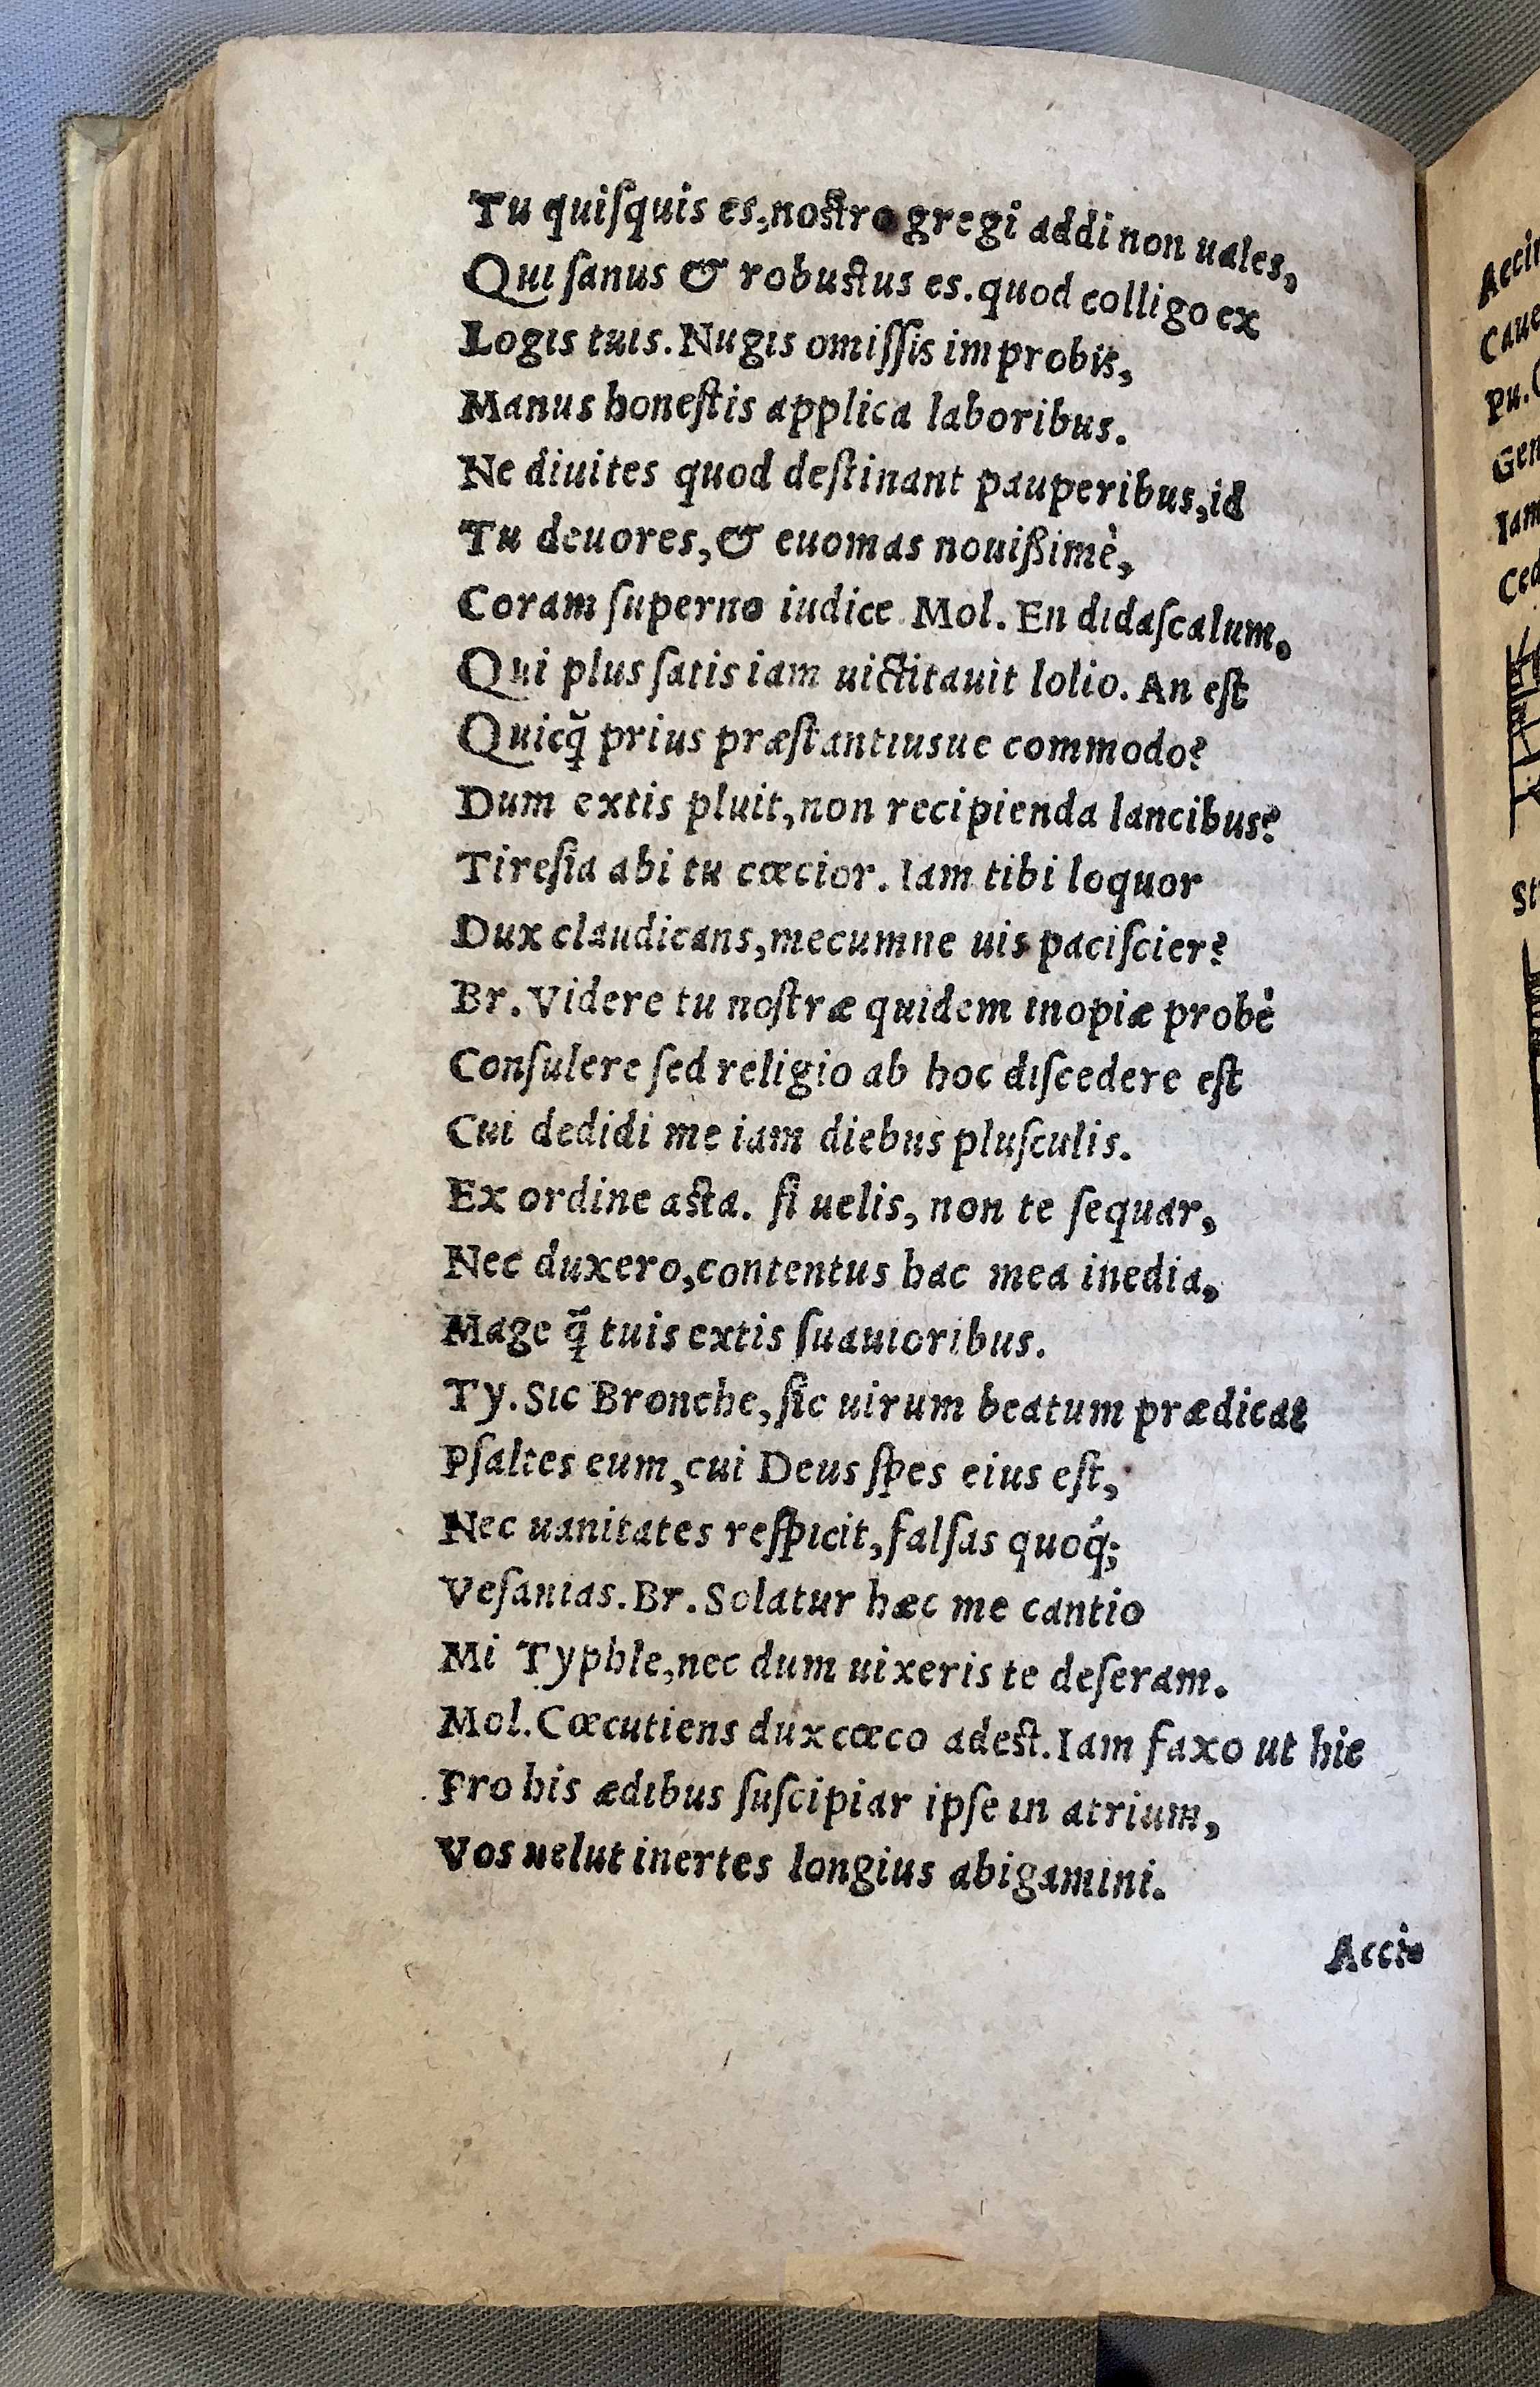 Tu quiſquis es, noſtro gregi addi non uales,
Qui ſanus & robuſtus es. quod colligo ex
Logis tuis. Nugis omiſſis improbis,
Manus honeſtis applica laboribus.
Ne diuites quod deſtinant pauperibus, id
Tu deuores, & euomas nouißimè,
Coram ſuperno iudice. Mol. En didaſcalum.
Qui plus ſatis iam uictitauit lolio. An eſt
Quicq̃ prius præſtantiusue commodo?
Dum extis pluit, non recipienda lancibus?
Tireſia abi tu cœcior. Iam tibi loquor
Dux claudicans, mecumne uis paciſcier?
Br. Videre tu noſtræ quidem inopiæ probè
Conſulere ſed religio ab hoc diſcedere eſt
Cui dedidi me iam diebus pluſculis.
Ex ordine aſta. ſi uelis, non te ſequar,
Nec duxero, contentus hac mea inedia,
Mage q̃ tuis extis ſuauioribus.
Ty. Sic Bronche, ſic uirum beatum prædicat
Pſaltes eum, cui Deus ſpes eius eſt,
Nec uanitates reſpicit, falſas quoq́;
Veſanias. Br. Solatur hæc me cantio
Mi Typhle, nec dum uixeris te deſeram.
Mol. Cœcutiens dux cœco adeſt. Iam faxo ut hic
Pro his ædibus ſuſcipiar ipſe in atrium,
Vos uelut inertes longius abigamini.
Acci-
Caue
pu.
Iam